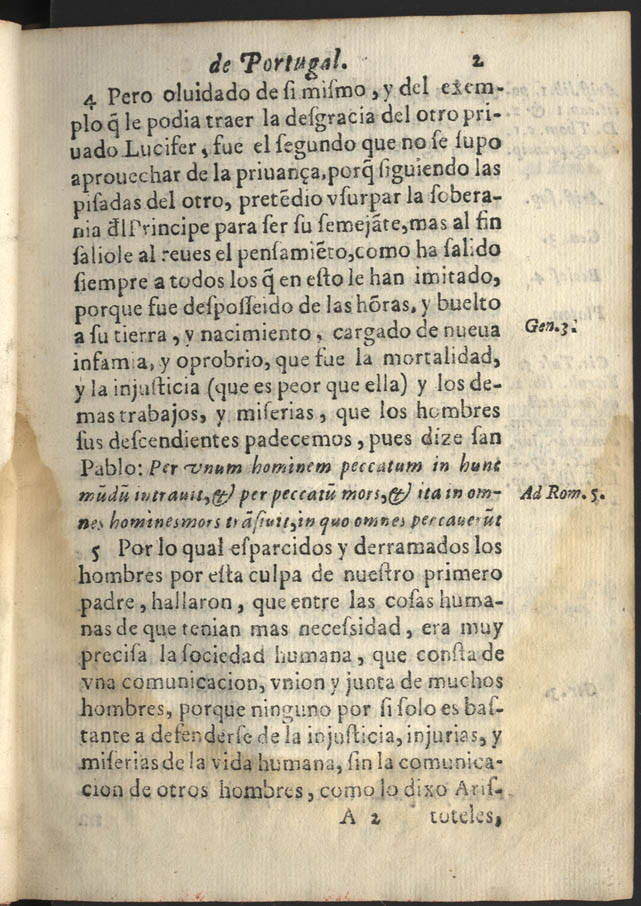 de Portugal. 2
4 Pero oluidado de ſi miſmo, y del exem-
plo q̃ le podia traer la deſgracia del otro pri-
uado Lucifer, fue el ſegundo que no ſe ſupo
aprouechar de la priuança, porq̃ ſiguiendo las
piſadas del otro, pretẽdio vſurpar la ſobera-
nia đlPrincipe para ſer ſu ſemejãte, mas al fin
ſaliole al reues el penſamiẽto, como ha ſalido
ſiempre a todos los q̃ en eſto le han imitado,
porque fue deſpoſſeido de las hõras, y buelto
a ſu tierra, y nacimiento, cargado de nueua
infamia, y oprobrio, que fue la mortalidad,
y la injuſticia (que es peor que ella) y los de-
mas trabajos, y miſerias, que los hombres
ſus deſcendientes padecemos, pues dize ſan
Pablo: Per vnum hominem peccatum in hunc
mũdũ intrauit, & per peccatũ mors, & ita in om-
nes hominesmors trãſiuit, in quo omnes peccauerũt
5 Por lo qual eſparcidos y derramados los
hombres por eſta culpa de nueſtro primero
padre, hallaron, que entre las coſas huma-
nas de que tenian mas neceſsidad, era muy
preciſa la ſociedad humana, que conſta de
vna comunicacion, vnion y junta de muchos
hombres, porque ninguno por ſi ſolo es baſ-
tante a defenderſe de la injuſticia, injurias, y
miſerias de la vida humana, ſin la comunica-
cion de otros hombres, como lo dixo Ariſ-
A 2 toteles,
Gen. 3.
Ad Rom. 5.